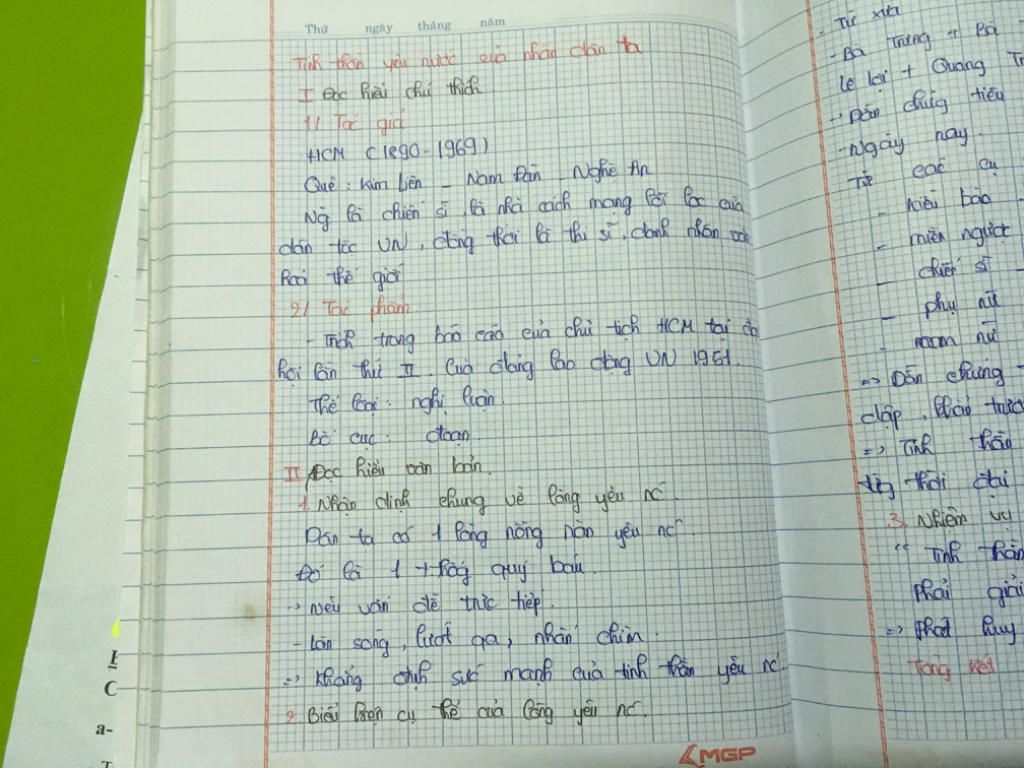 Thứ ngày tháng năm
Tinh thần yêu nước của nhân dân ta
I Đọc hiểu chú thích
1/ Tác giả
HCM (1890-1969)
Quê: Kim Liên - Nam Đàn - Nghệ An
Ng là chiến sĩ, là nhà cách mạng lỗi lạc của
dân tộc VN, đồng thời là thi sĩ, danh nhân văn
hoá thế giới
2/ Tác phẩm
- Trích trong báo cáo của chủ tịch HCM tại đại
hội lần thứ II. Của đảng lao động VN 1951.
Thể loại: nghị luận.
Bố cục: đoạn.
II Đọc hiểu văn bản.
1. Nhận định chung về lòng yêu nc.
Dân ta có 1 lòng nồng nàn yêu nc
Đó là 1 thống quý báu.
-> Nêu vấn đề trực tiếp.
- Làn sóng, lướt qa, nhấn chìm.
=> Khẳng định sức mạnh của tinh thần yêu nc.
2. Biểu hiện cụ thể của lòng yêu nc.
MGP
- Từ xưa
- Bà Trưng + Bà
Lê Lợi + Quang Tr
-> Dẫn chứng tiêu
- Ngày nay.
Từ các cụ
- kiều bào
- miền ngược
- chiến sĩ
- phụ nữ
- nam nữ
=> Dẫn chứng
=> Tinh thần
từng thời đại
3. Nhiệm vụ
"Tinh thần
phải giải
=> phát huy
Tổng kết
C
a-